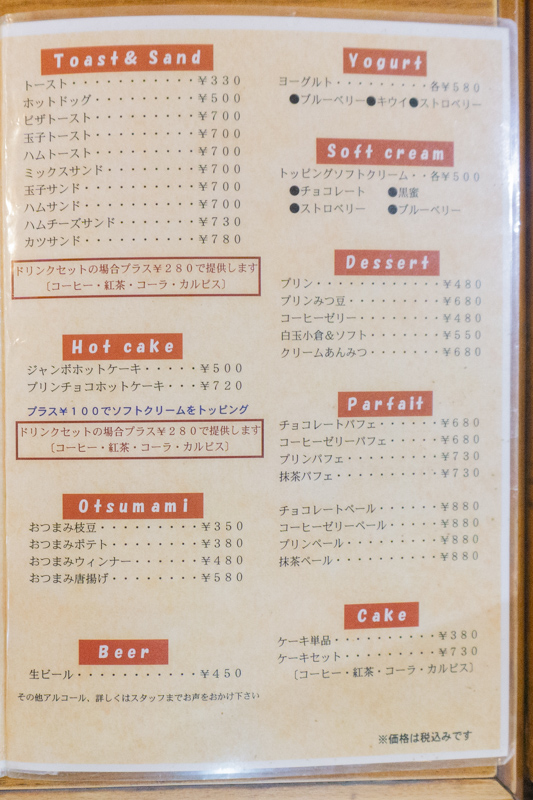 Toast & Sand
トースト・・・・・・・・・・・¥330
ホットドッグ・・・・・・・・・¥500
ピザトースト・・・・・・・・・¥700
玉子トースト・・・・・・・・・¥700
ハムトースト・・・・・・・・・¥700
ミックスサンド・・・・・・・・¥700
玉子サンド・・・・・・・・・・¥700
ハムサンド・・・・・・・・・・¥700
ハムチーズサンド・・・・・・・¥730
カツサンド・・・・・・・・・・¥780
ドリンクセットの場合プラス¥280で提供します
〔コーヒー・紅茶・コーラ・カルピス〕
Hot cake
ジャンボホットケーキ・・・・・¥500
プリンチョコホットケーキ・・・¥720
プラス¥100でソフトクリームをトッピング
ドリンクセットの場合プラス¥280で提供します
〔コーヒー・紅茶・コーラ・カルピス〕
Otsumami
おつまみ枝豆・・・・・・・・・¥350
おつまみポテト・・・・・・・・¥380
おつまみウィンナー・・・・・・¥480
おつまみ唐揚げ・・・・・・・・¥580
Beer
生ビール・・・・・・・・・・・¥450
その他アルコール、詳しくはスタッフまでお声をおかけ下さい
Yogurt
ヨーグルト・・・・・・・・・各¥580
●ブルーベリー●キウイ●ストロベリー
Soft cream
トッピングソフトクリーム・・各¥500
●チョコレート ●黒蜜
●ストロベリー ●ブルーベリー
Dessert
プリン・・・・・・・・・・・・¥480
プリンみつ豆・・・・・・・・・¥680
コーヒーゼリー・・・・・・・・¥480
白玉小倉&ソフト・・・・・・・¥550
クリームあんみつ・・・・・・・¥680
Parfait
チョコレートパフェ・・・・・・¥680
コーヒーゼリーパフェ・・・・・¥680
プリンパフェ・・・・・・・・・¥730
抹茶パフェ・・・・・・・・・・¥730
チョコレートペール・・・・・・¥880
コーヒーゼリーペール・・・・・¥880
プリンペール・・・・・・・・・¥880
抹茶ペール・・・・・・・・・・¥880
Cake
ケーキ単品・・・・・・・・・・¥380
ケーキセット・・・・・・・・・¥730
〔コーヒー・紅茶・コーラ・カルピス〕
※価格は税込みです